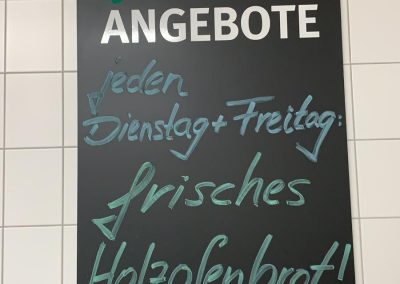 ANGEBOTE
jeden
Dienstag + Freitag:
frisches
Holzofenbrot!